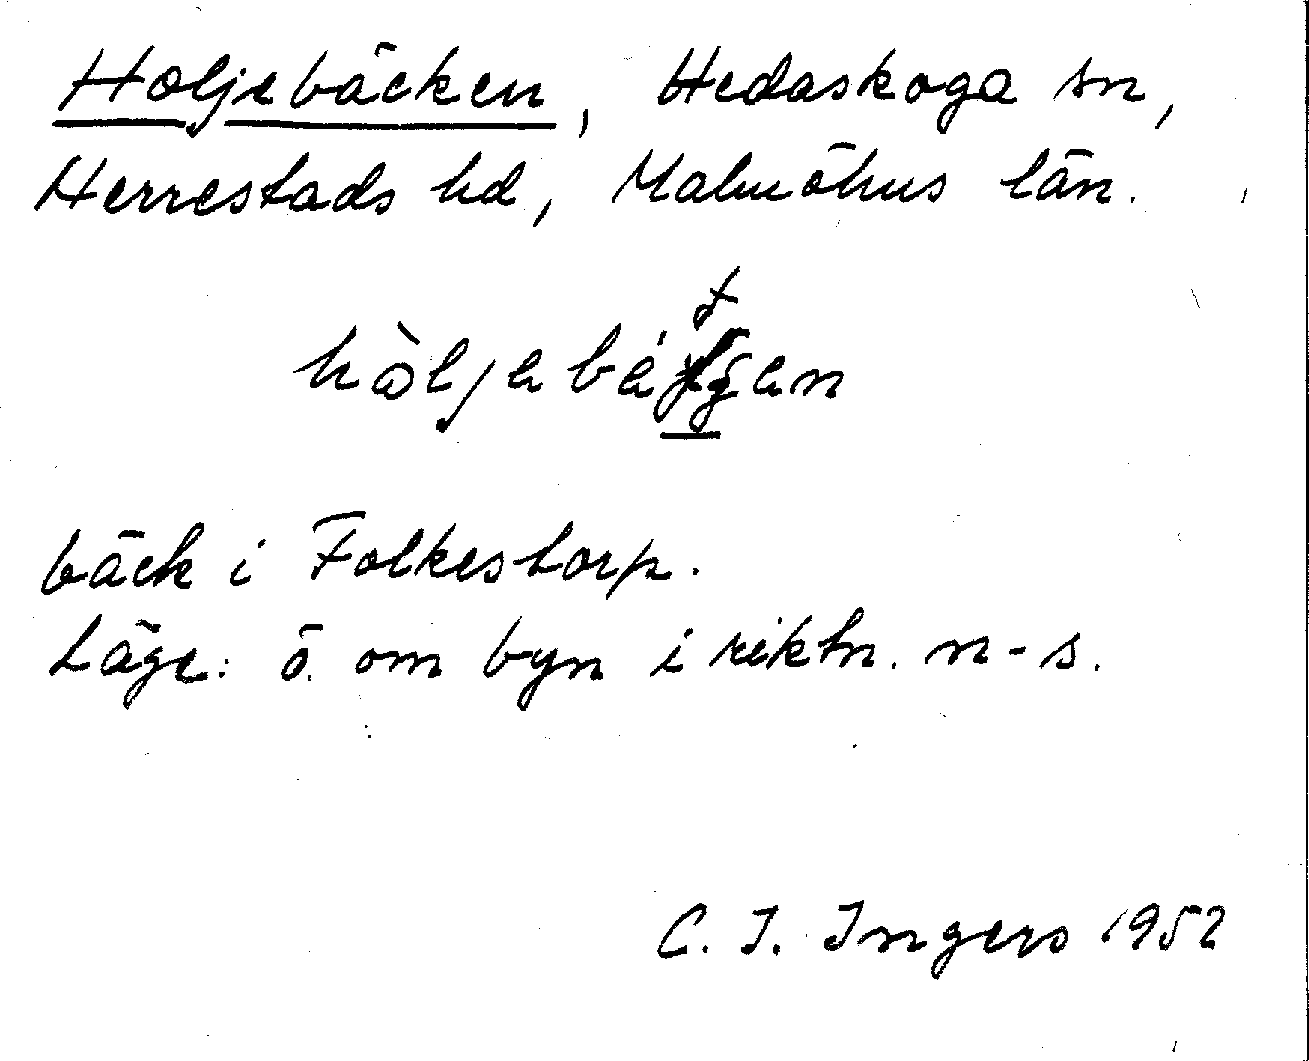 Holjebäcken, Hedaskoga sn,
Herrestads hd, Malmöhus län.
bäck i Folkestorp.
Läge: ö. om byn i riktn. n-s.
C. I. Ingers 1952